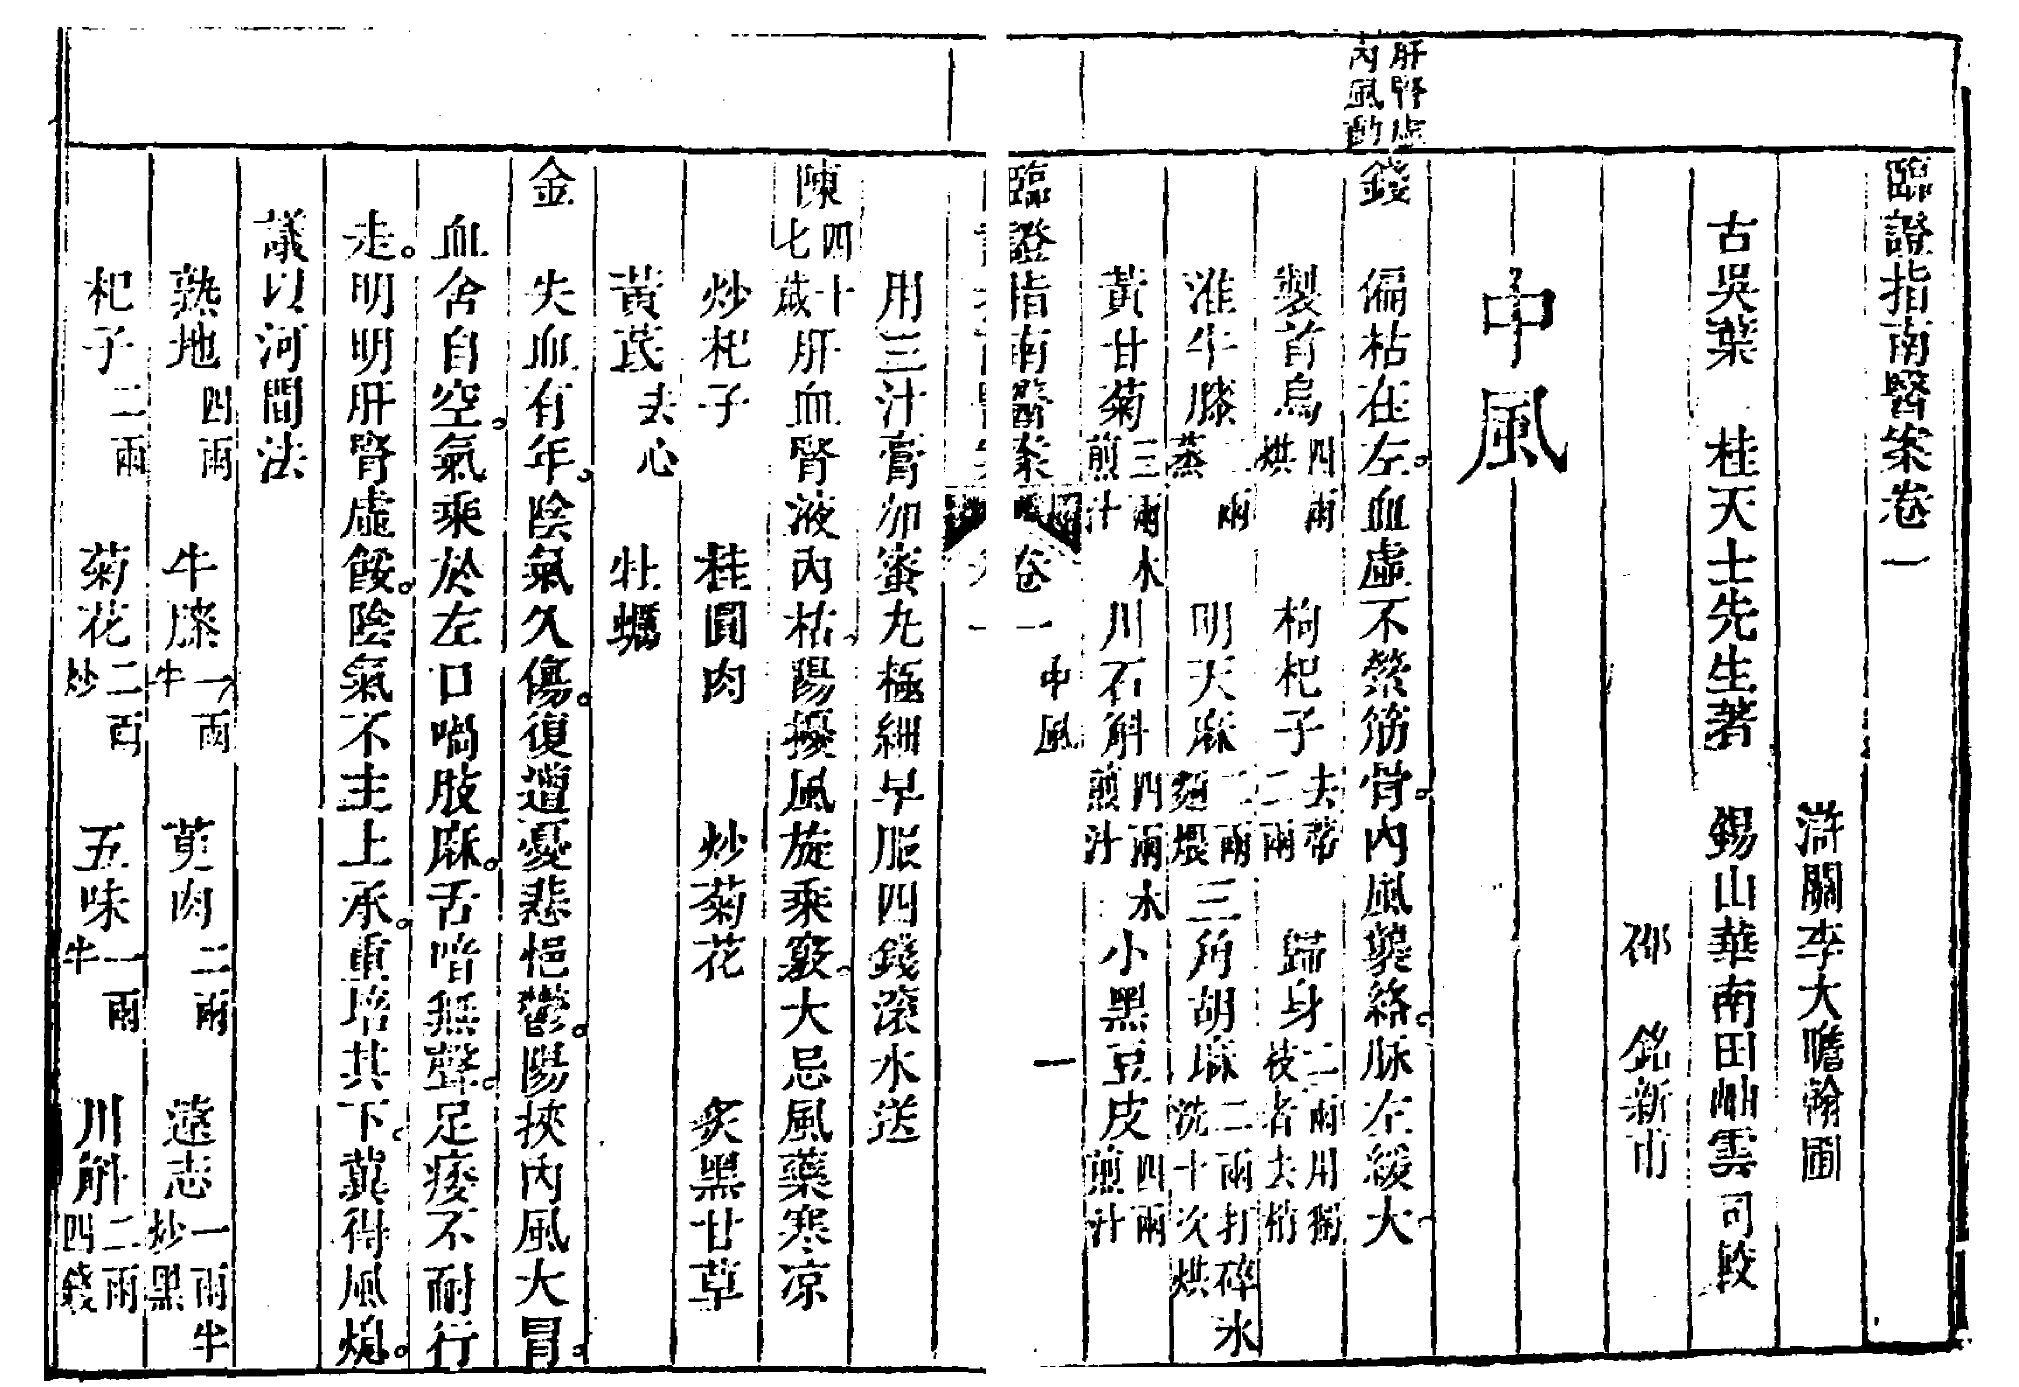 臨證指南醫案卷一
滸關李大瞻翰圃
古吳葉　桂天士先生著　錫山華南田岫雲司較
邵　銘新甫
中風
肝腎虛
內風動
錢　偏枯在左。血虛不榮筋骨。內風襲絡。脉左緩大。
製首烏四兩烘　枸杞子去蒂二兩　歸身二兩用獨枝者去梢
淮牛膝二兩蒸　明天麻二兩麵煨　三角胡麻二兩打碎水洗十次烘
黃甘菊三兩水煎汁　川石斛四兩水煎汁　小黑豆皮四兩煎汁
臨證指南醫案　卷一　中風　一
用三汁膏加蜜丸極細早服四錢滾水送
陳四十七歲　肝血腎液內枯。陽擾風旋乘竅。大忌風藥寒凉
炒杞子　桂圓肉　炒菊花　炙黑甘草
黃芪去心　牡蠣
金　失血有年。陰氣久傷。復遭憂悲悒鬱。陽挾內風大冒。
血舍自空。氣乘於左口喎肢麻。舌喑無聲。足痿不耐行
走。明明肝腎虛餒。陰氣不主上承。重培其下。冀得風熄。
議以河間法
熟地四兩　牛膝一兩半　萸肉二兩　遠志一兩半炒黑
杞子二兩　菊花二兩炒　五味一兩半　川斛二兩四錢